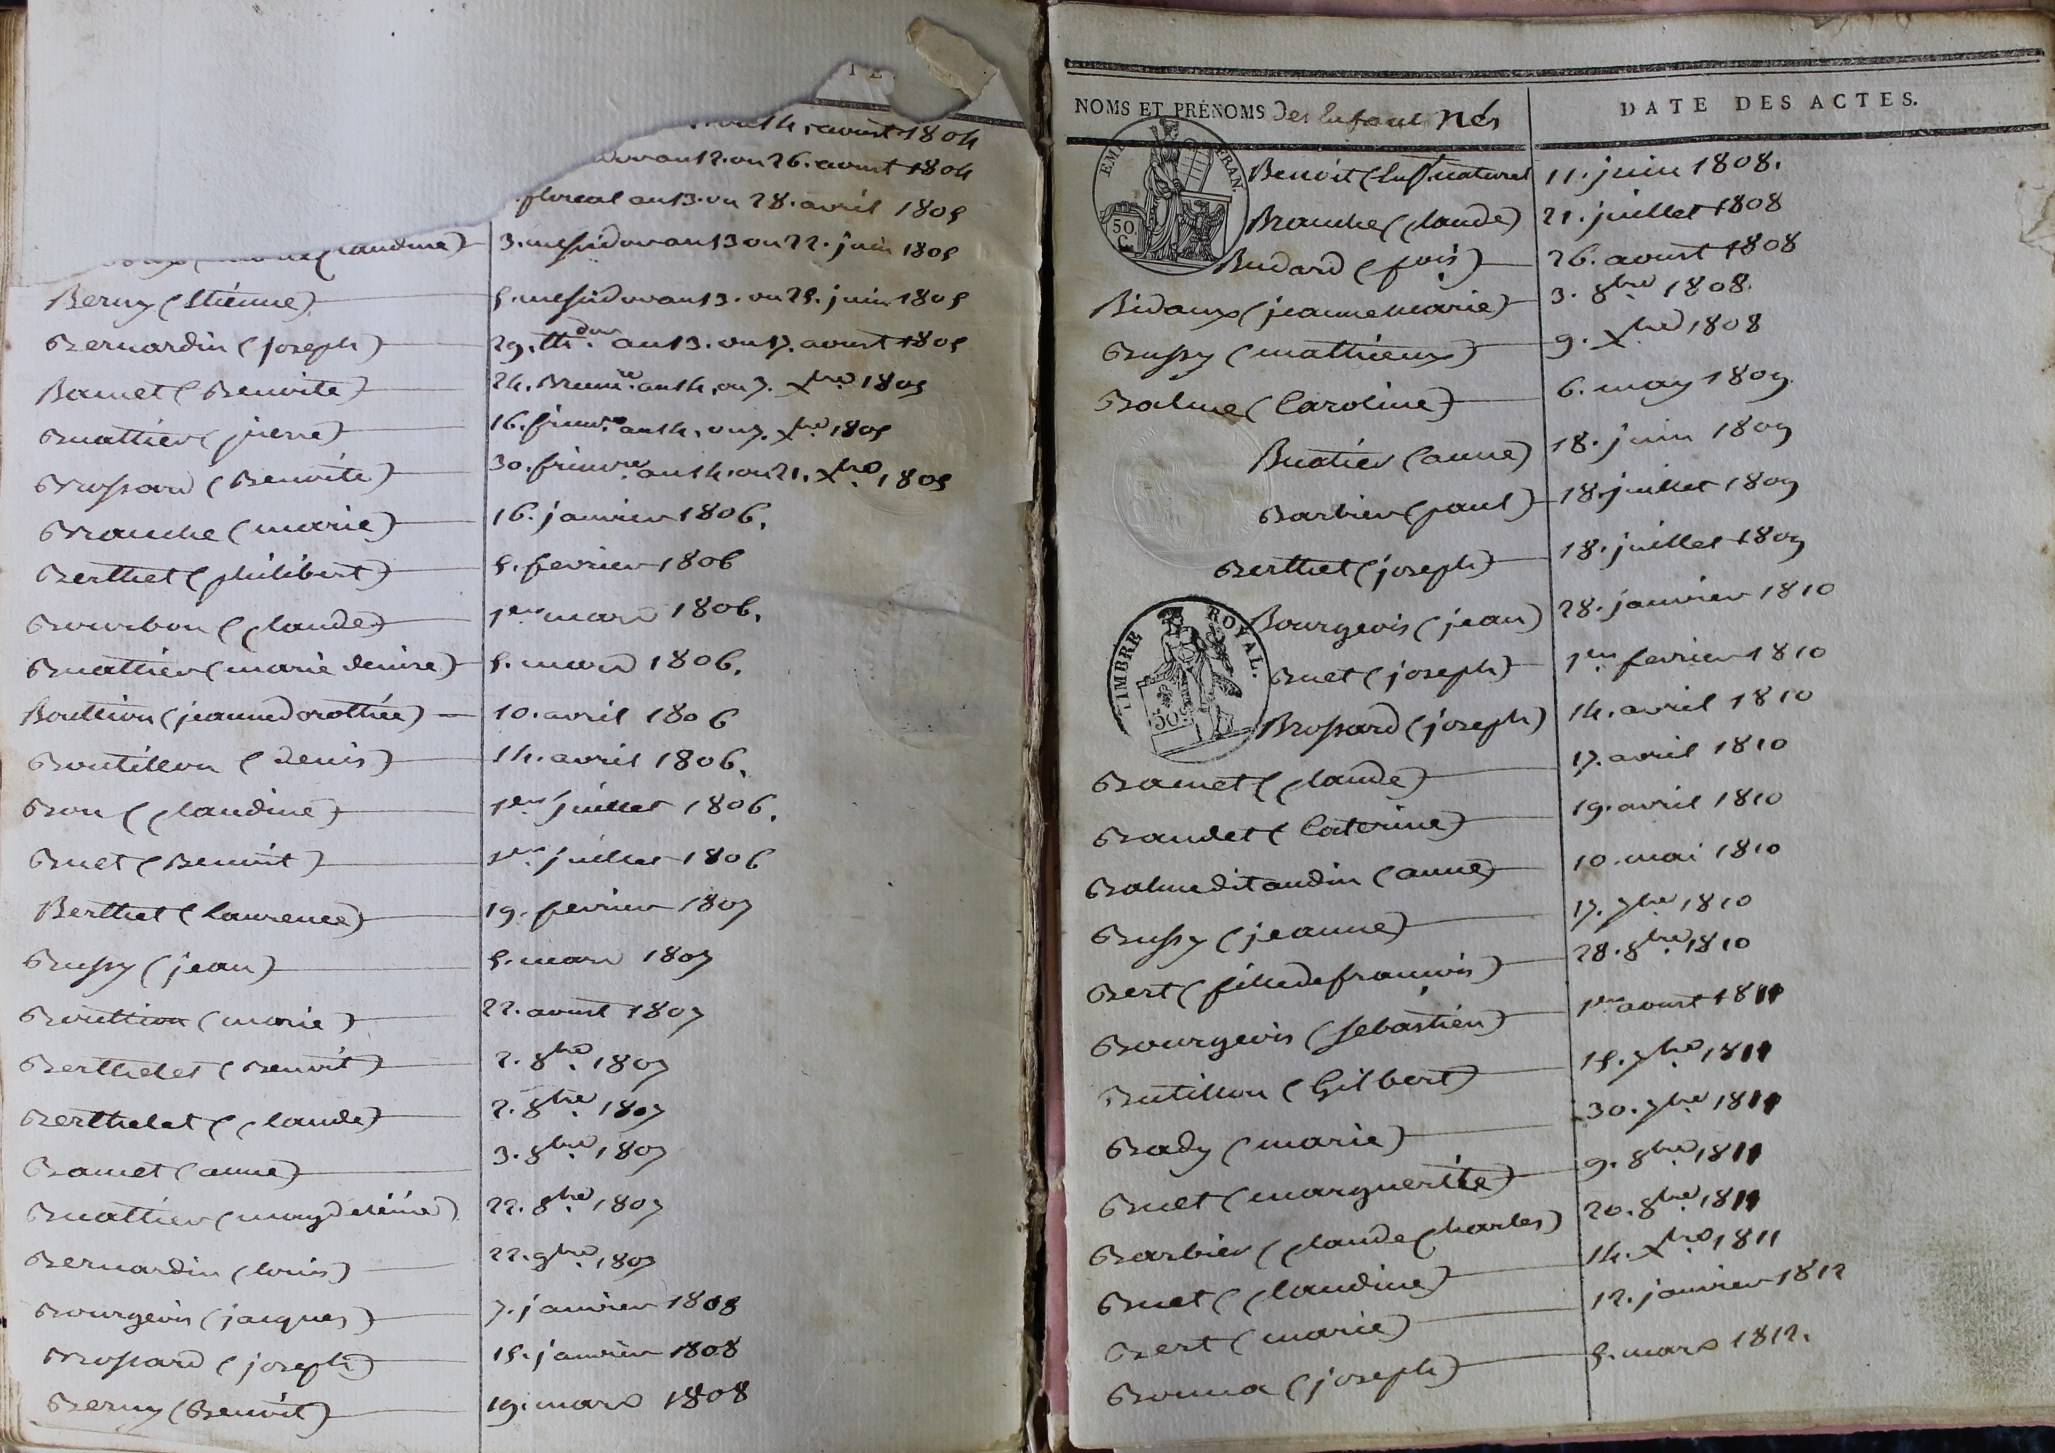 TE
août 1804
an 12. ou 26. aoust 1804
floreal an 13. ou 28. avril 1805
Claudine) 3. messidor an 13 ou 22. juin 1805
Berny (Etienne) 5. messidor an 13. ou 25. juin 1805
Bernardin (joseph) 29. th.dor an 13. ou 17. aoust 1805
Bamet (Benoite) 24. Brum.re an 14. ou 7. Xbre 1805
Buattier (pierre) 16. frim.re an 14. ou 7. Xbre 1805
Brossard (Benoite) 30. frimre an 14. ou 21. Xbre 1805
Branche (marie) 16. janvier 1806.
Berthet (philibert) 5. fevrier 1806
Bourbon (Claude) 1er mars 1806.
Buattier (marie denise) 5. mars 1806.
Bouttion (jeanne Dorothée) 10. avril 1806
Boutillon (Denis) 14. avril 1806.
Bon (Claudine) 1er juillet 1806.
Buet (Benoit) 1er juillet 1806
Berthet (laurence) 19. fevrier 1807
Bussy (jean) 5. mars 1807
Bouttion (marie) 22. aoust 1807
Berthelet (Benoit) 2. 8bre 1807
Berthelet (Claude) 2. 8bre 1807
Bamet (anne) 3. 8bre 1807
Buattier (magdeleine) 22. 8bre 1807
Bernardin (louis) 22. 9bre 1807
Bourgeois (jacques) 7. janvier 1808
Brossard (joseph) 15. janvier 1808
Berny (Benoit) 19. mars 1808
NOMS ET PRÉNOMS des Enfans Nés
DATE DES ACTES.
EMP. FRAN.
50. C.
Benoit (Enft. naturel 11. juin 1808.
Branche (Claude) 21. juillet 1808
Budard (fois) 26. aoust 1808
Bidaux (jeanne marie) 3. 8bre 1808.
Bussy (mathieux) 9. Xbre 1808
Balme (Caroline) 6. may 1809
Buatier (anne) 18. juin 1809
Barbier (paul) 18. juillet 1809
Berthet (joseph) 18. juillet 1809
TIMBRE ROYAL.
50c
Bourgeois (jean) 28. janvier 1810
Buet (joseph) 1er fevrier 1810
Brossard (joseph) 14. avril 1810
Bamet (Claude) 17. avril 1810
Baudet (Caterine) 19. avril 1810
Balme dit audin (anne) 10. mai 1810
Bussy (jeanne) 17. 7bre 1810
Bert (fille de francois) 28. 8bre 1810
Bourgeois (Sebastien) 1er aoust 1811
Butillon (Gilbert) 15. 7bre 1811
Bady (marie) 30. 7bre 1811
Buet (marguerite) 9. 8bre 1811
Barbier (Claude Charles) 20. 8bre 1811
Buet (Claudine) 14. Xbre 1811
Bert (marie) 12. janvier 1812
Bonna (joseph) 5. mars 1812.